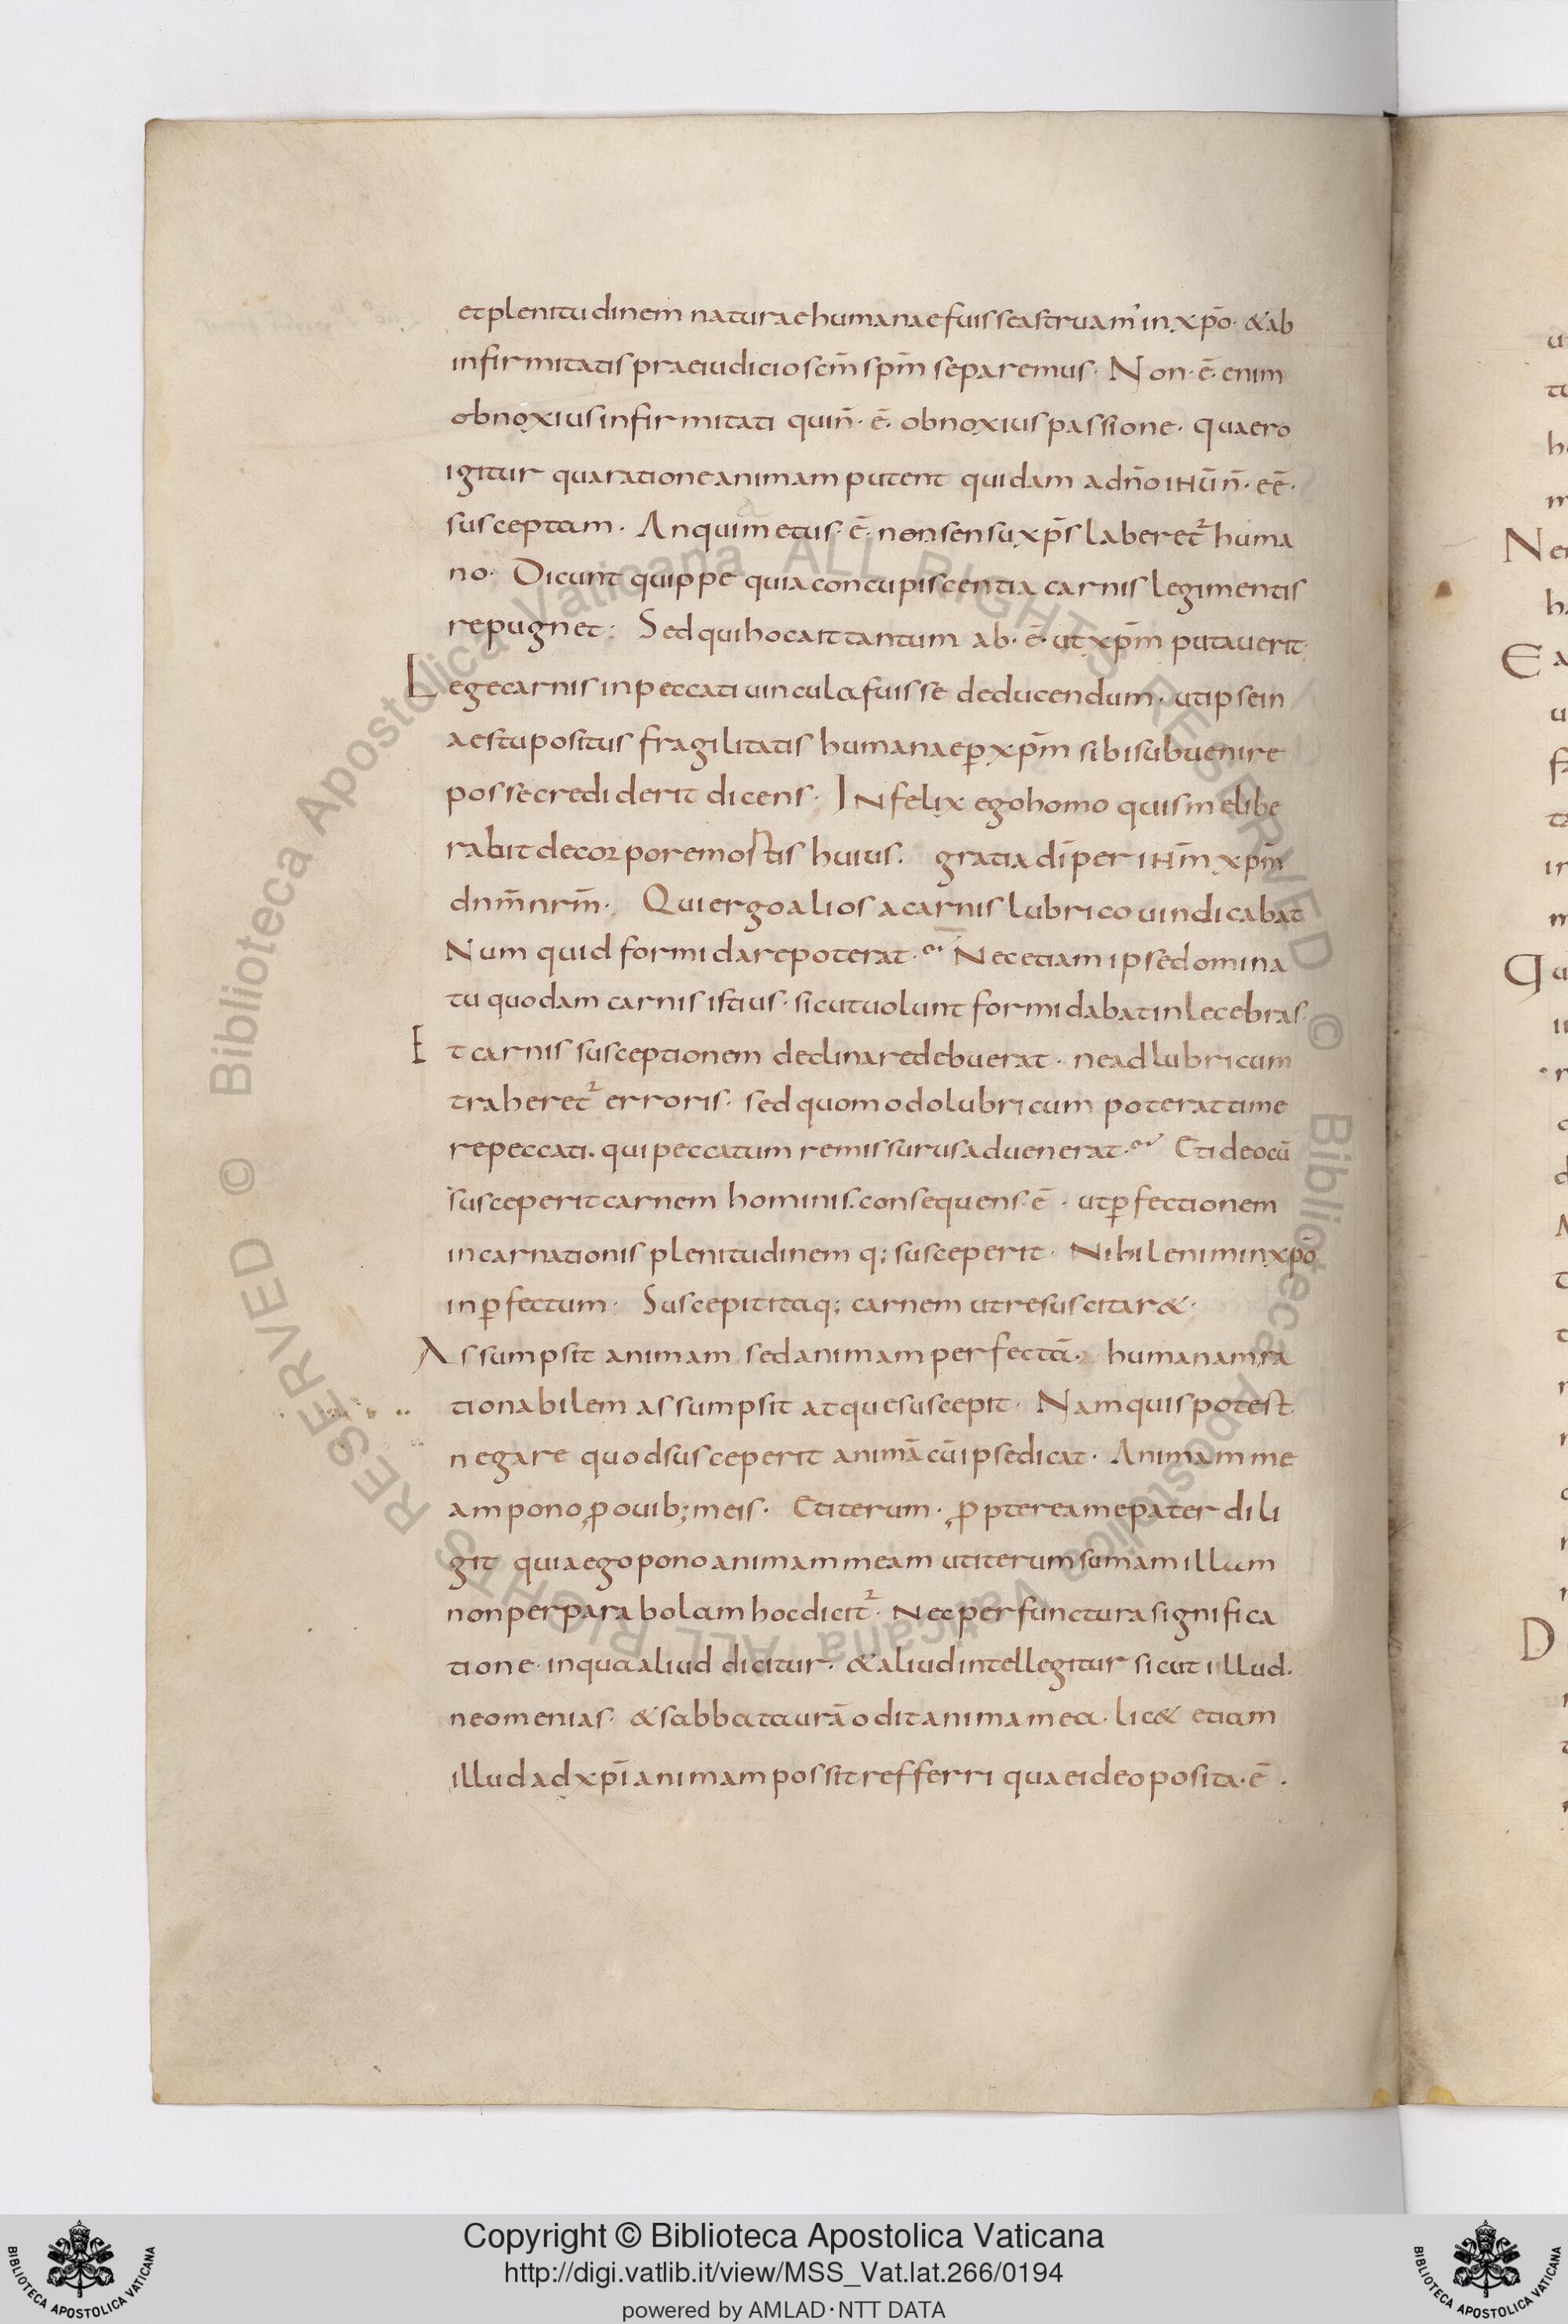 et plenitudinem naturae humanae fuisse astruam' in xp̄o· & ab
infirmitatis praeiudicio sc̄m sp̄m separemus· Non· ē· enim
obnoxius infirmitati qui n̄· ē· obnoxius passione· quaero
igitur qua ratione animam putent quidam a dn̄o ihū n̄· eē·
susceptam· An qui metus· ē· non sensu xp̄s laberet᷑ huma
no· Dicunt quippe quia concupiscentia carnis legi mentis
repugnet: Sed qui hoc ait tantum ab· ē· ut xp̄m putauerit·
Lege carnis in peccati uincula fuisse deducendum· ut ipse in
aestu positus fragilitatis humanae ꝑ xp̄m sibi subuenire
posse crediderit dicens· Infelix ego homo quis me libe
rabit de corpore mostis huius· gratia dī per ihm̄ xpm̄
dnm̄ nrm̄· Qui ergo alios a carnis lubrico uindicabat
Numquid formidare poterat· Nec etiam ipse domina
tu quodam carnis istius· sicut uolunt formidabat inlecebras·
Et carnis susceptionem declinare debuerat· ne ad lubricum
traheret᷑ erroris· sed quomodo lubricum poterat time
re peccati· qui peccatum remissurus aduenerat· Et ideo cū
susceperit carnem hominis· consequens· ē· ut ꝑfectionem
incarnationis plenitudinem q; susceperit· Nihil enim in xpō
inꝑfectum· Suscepit itaq; carnem ut resuscitar&·
Assumpsit animam sed animam perfectā· humanam ra
tionabilem assumpsit atque suscepit· Nam quis potest
negare quod susceperit animā cū ipse dicat· Animam me
am pono ꝓ ouib; meis· Et iterum· ꝓpterea me pater dili
git quia ego pono animam meam ut iterum sumam illum
non per parabolam hoc dicit᷑· Nec per functura significa
tione· in qua aliud dicitur· & aliud intellegitur sicut illud·
neomenias· & sabbata urā odit anima mea· lic& etiam
illud ad xpī animam possit refferri quae ideo posita· ē·
Copyright © Biblioteca Apostolica Vaticana
http://digi.vatlib.it/view/MSS_Vat.lat.266/0194
powered by AMLAD·NTT DATA